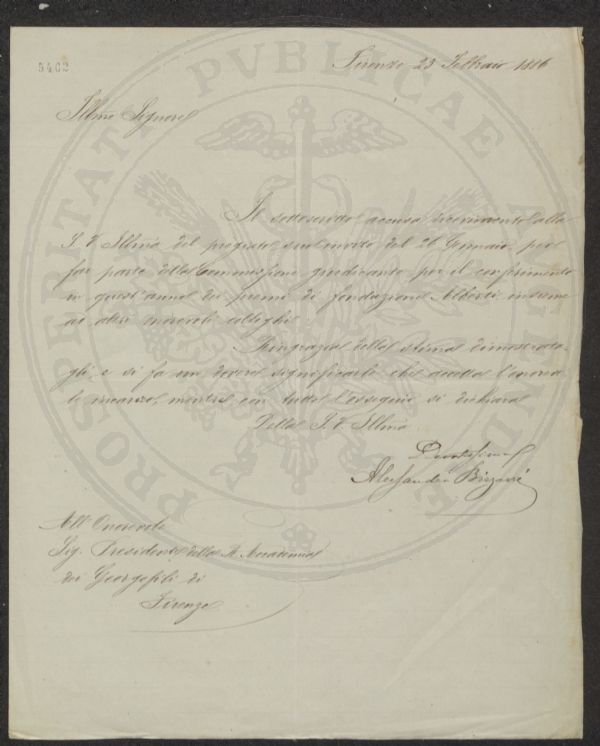 5402
Firenze 23 Febbraio 1886
Illmo Signore
Il sottoscritto accusa ricevimento alla
S. V. Illma del pregiato suo invito del 26 Gennaio per
far parte della Commissione giudicante per il conferimento
in quest'anno dei premi di fondazione Alberti insieme
ad altri onorevoli colleghi.
Ringrazia della stima dimostrata-
gli, e si fa un dovere significarle che accetta l'onorevo-
le incarico, mentre con tutto l'ossequio si dichiara
Della S. V. Illma
Devotissimo
Alessandro
All'Onorevole
Sig. Presidente della R. Accademia
dei Georgofili di
Firenze
PROSPERITATI PVBLICAE AVGENDAE